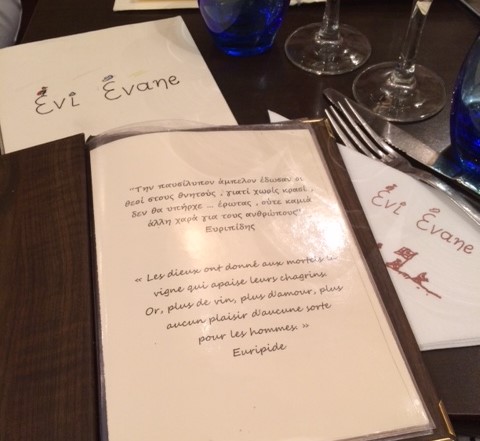 Evi Evane
"Την παυσίλυπον άμπελον έδωσαν οι
θεοί στους θνητούς , γιατί χωρίς κρασί ,
δεν θα υπήρχε ... έρωτας , ούτε καμιά
άλλη χαρά για τους ανθρώπους"
Ευριπίδης
« Les dieux ont donné aux mortels la
vigne qui apaise leurs chagrins.
Or, plus de vin, plus d'amour, plus
aucun plaisir d'aucune sorte
pour les hommes. »
Euripide
Evi Evane